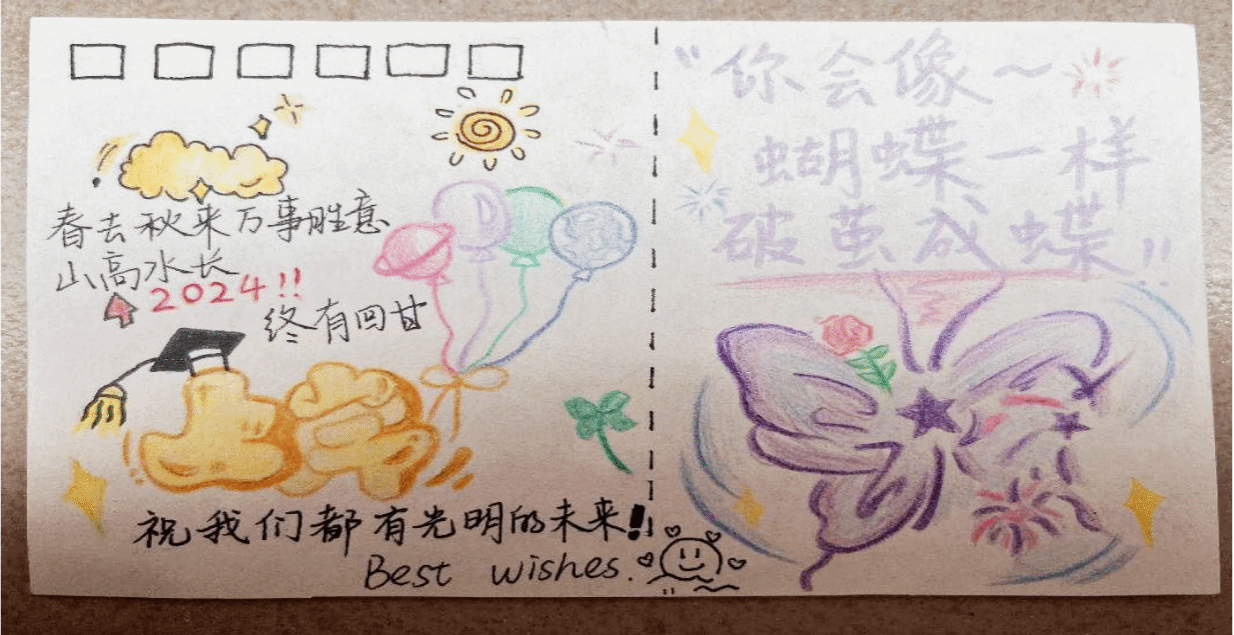 春去秋来万事胜意
山高水长
2024!!
终有回甘
祝我们都有光明的未来!
Best wishes.
"你会像～
蝴蝶一样
破茧成蝶!!